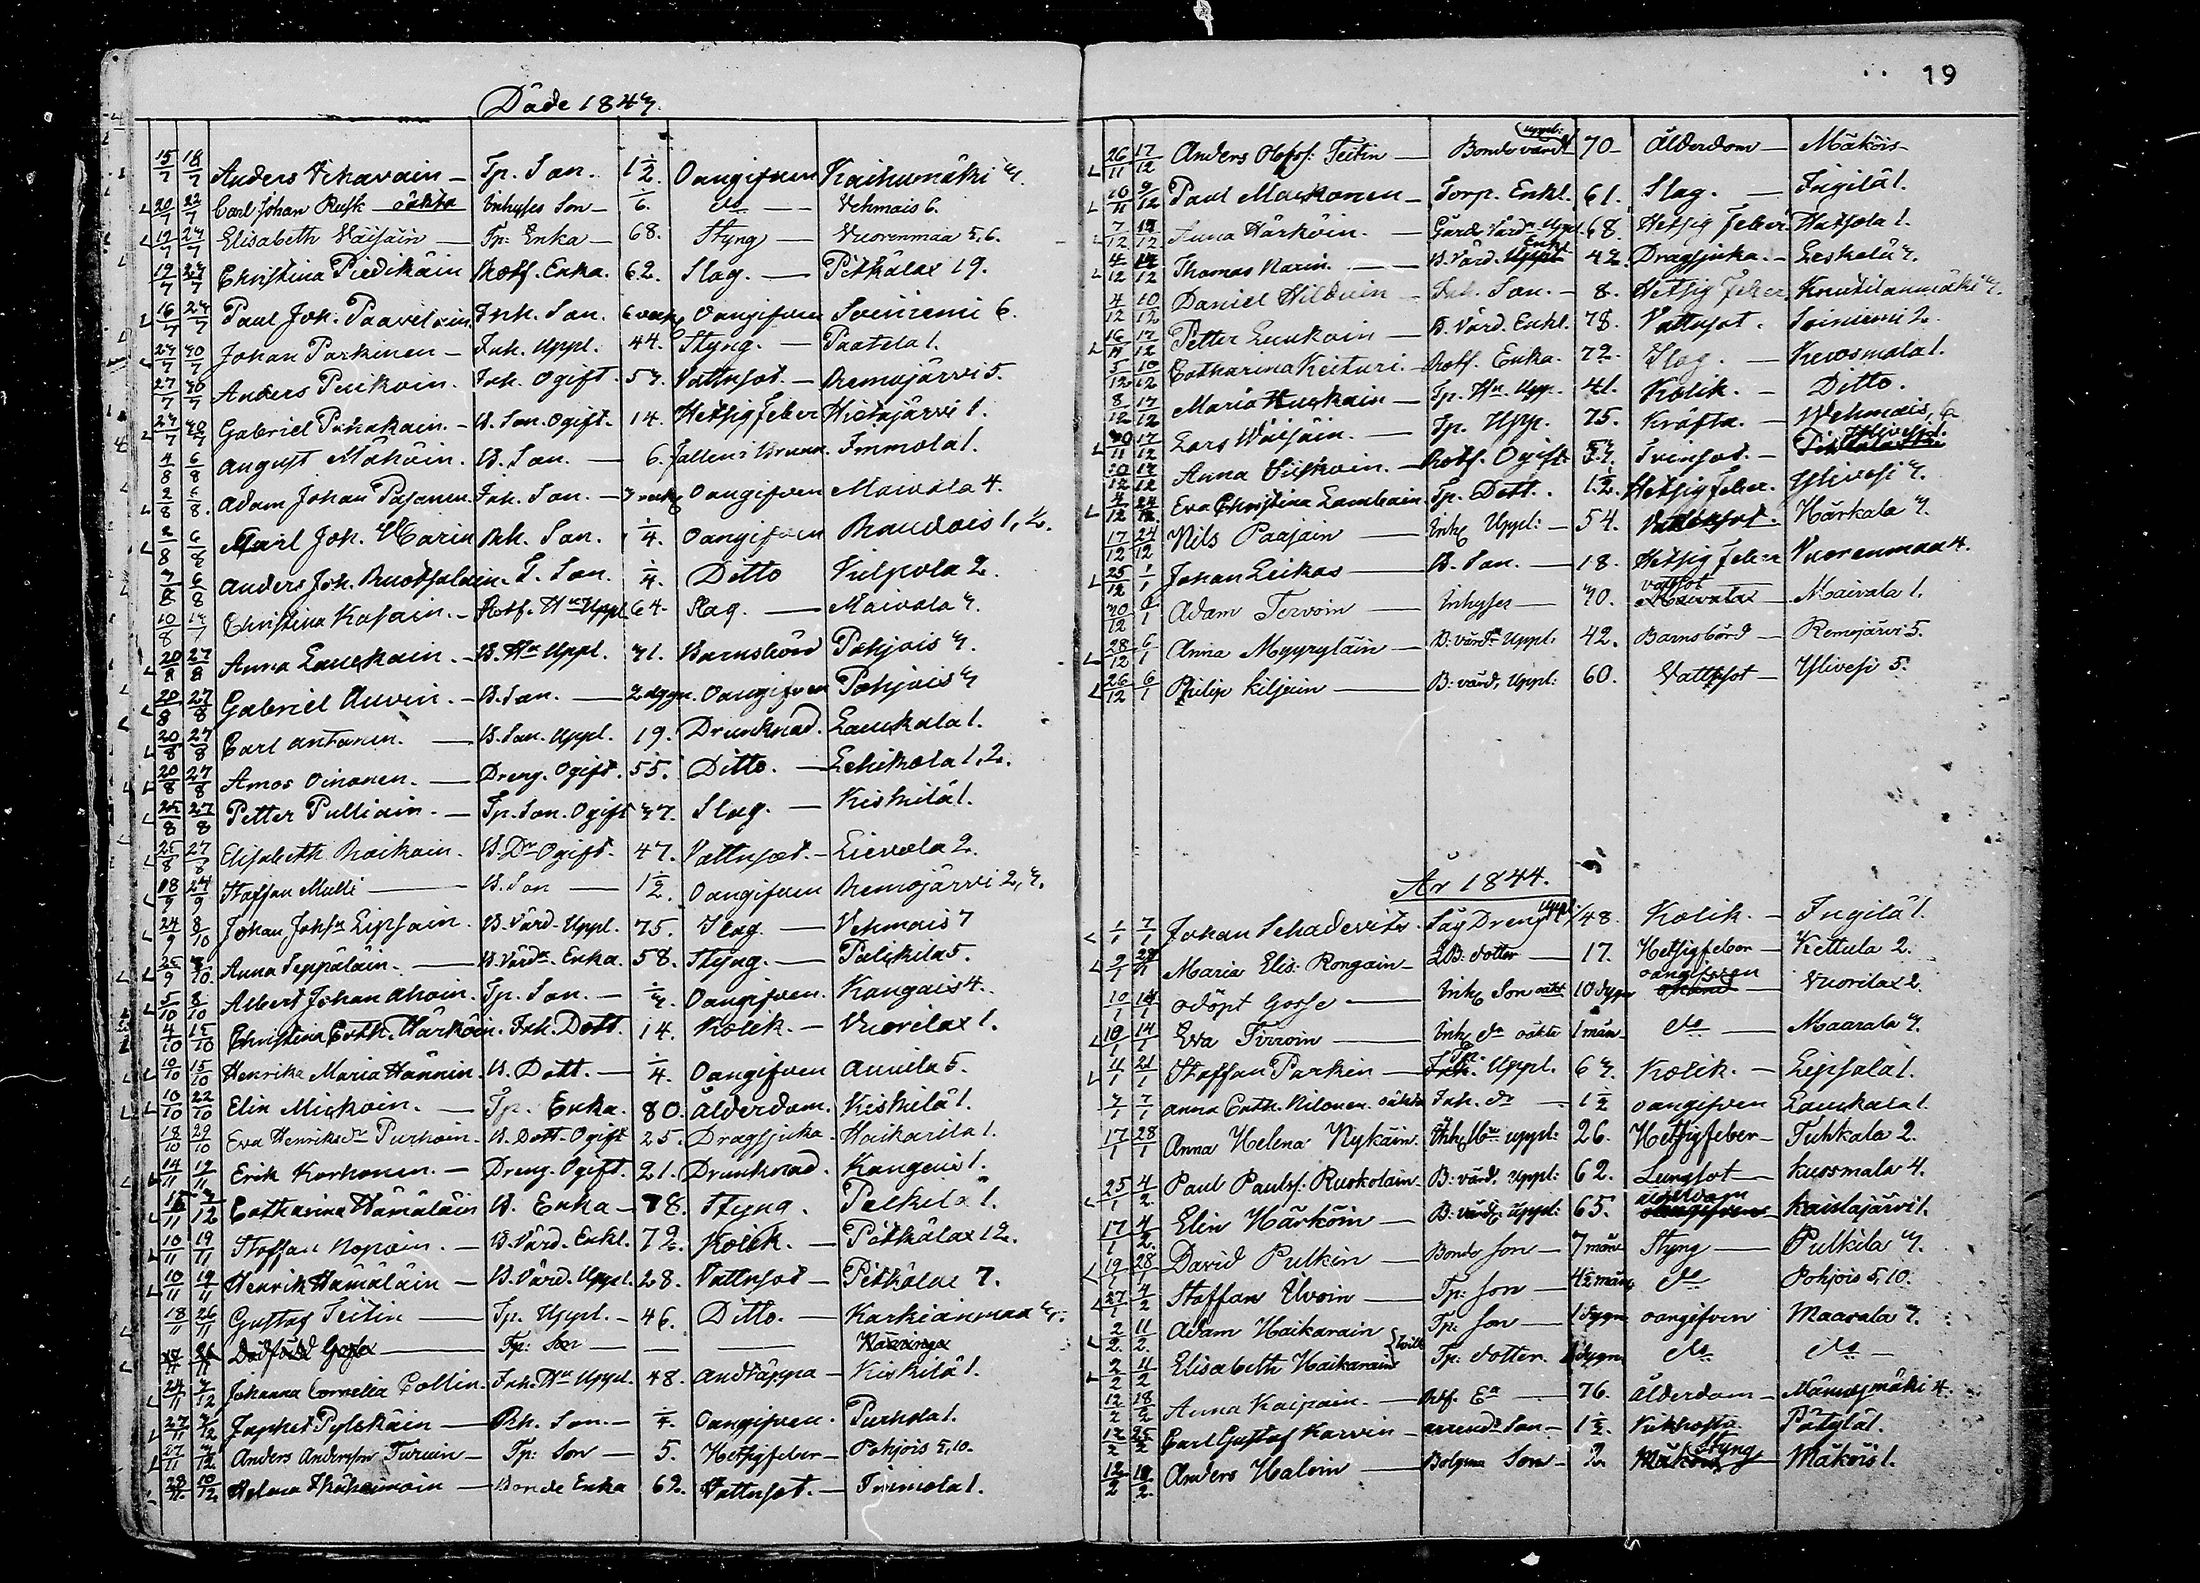 19
Döde 1843.
15/7 18/7 Anders Ikavain - Tp. Son. 1/2. Oangifven Kaikumäki 3.
20/7 22/7 Carl Johan Rusk oäkta Inhyses Son - 1/6. do - Vehmais 6.
19/7 23/7 Elisabeth Väisäin - Tp: Enka - 68. Styng - Vuorenmaa 5,6.
19/7 23/7 Christina Piedikäin Rotf. Enka. 62. Slag. - Pitkälax 19.
16/7 23/7 Paul Joh. Paavelain Inh. Son. 6 veck. Oangifven Soiniemi 6.
23/7 30/7 Johan Parkinen - Inh. Uppl. 44. Styng. - Paatela 1.
27/7 30/7 Anders Puikoin. Inh. Ogift. 53. Vattnsot. - Remojärvi 5.
23/7 30/7 Gabriel Puhakain. - B. Son. Ogift. 14. Hetsig feber Hietajärvi 1.
4/8 6/8 August Mäköin. B. Son. - 6. fallen i Brunn. Immola 1.
2/8 6/8 Adam Johan Pasanen. Inh. Son. - 3 veck. Oangifven Maivala 4.
2/8 6/8 Karl Joh. Harin Bh. Son. 1/4. Oangifven Raudois 1, 2.
3/8 6/8 Anders Joh. Ruotsalain. T. Son. 1/4. Ditto Kulpola 2.
10/8 13/7 Christina Kasain. - Rotf. Hu Uppl. 64. Slag. - Maivala 3.
20/8 27/8 Anna Laukain. - B. Hu Uppl. 31. Barnsbörd Pohjois 3.
20/8 27/8 Gabriel Auvin. - B. Son. - 2 dygn. Oangifven Pohjois 3
20/8 27/8 Carl Antonen. - B. Son. Uppl. 19. Drunknad. Laukala 1.
20/8 27/8 Amos Oinonen. - Dreng. Ogift. 55. Ditto. - Lehikola 1,2.
25/8 27/8 Petter Pulliain. - Tp. Son. Ogift 37. Slag. - Kiskilä 1.
25/8 27/8 Elisabeth Raikain. B. Dr Ogift. 47. Vattnsot. - Lievola 2.
18/9 24/9 Staffan Multi - B. Son - 1/2. Oangifven Remojärvi 2, 3.
24/9 8/10 Johan Johsn Lipsain. B. Värd. Uppl. 75. Slag - Vehmais 7
25/9 8/10 Anna Seppäläin. - B. Värda. Enka. 58. Styng. - Pulkila 5.
5/10 8/10 Albert Johan Ahoin. Tp. Son. - 1/3. Oangifven. Kangais 4.
4/10 15/10 Christina Cath. Härköin. Inh. Dott. 14. Kolik. - Vuorilax 1.
10/10 15/10 Henrika Maria Hännin. B. Dott. - 1/4. Oangifven Auvila 5.
10/10 22/10 Elin Miskoin. - Tp. Enka. 80. Ålderdom. Kiskilä 1.
18/10 29/10 Eva Henriksdr Purhoin. B. Dott. Ogift 25. Dragsjuka. Haikarila 1.
14/11 19/11 Erik Korhonen. - Dreng. Ogift. 21. Drunknad. Kangais 1.
15/11 3/12 Catharina Hämäläin B. Enka - 78. Styng. Pulkila 1.
10/11 19/11 Staffan Nopoin. - B. Värd. Enkl. 72. Kolik. - Pitkälax 12.
10/11 19/11 Henrik Hämäläin - B. Värd. Uppl. 28. Vattnsot - Pitkälax 7.
18/11 26/11 Gustaf Teitin - Tp. Uppl. - 46. Ditto. - Karkianmaa 3.
Dödfödd Gosse - Tp: Son -
24/11 3/12 Johanna Cornelia Collin. Inh. Hu Uppl. 48. Andtäppa - Kiskilä 1.
27/11 3/12 Japhet Pylskäin - Rh. Son. - 1/4. Oangifven. Purhola 1.
27/11 3/12 Anders Andersson Turuin - Tp: Son - 5. Hetsigfeber - Pohjois 5,10.
28/11 10/12 Helena Ihäheimoin - Bonde Enka 62. Vattnsot. - Toimola 1.
26/11 17/12 Anders Olofss: Teitin - Bonde värd uppl: 70 - Ålderdom - Mäköis -
20/11 9/12 Paul Maskonen - Torp. Enkl. 61. Slag. - Ingilä 1.
7/12 17/12 Anna Härköin. - Gårds Värdn Uppl. 68. Hetsig feber Hatsola 1.
4/12 17/12 Thomas Narin. - B. Värd. Uppl Enkl 42. Dragsjuka. - Leskelä 3.
4/12 10/12 Daniel Hilduin - Inh. Son. - 8. Hetsig feber Knutilanmäki 3.
16/11 17/12 Petter Luukain - B. Värd. Enkl. 78. Vattnsot. Soiniemi 2.
5/12 10/12 Catharina Keituri. Rotf. Enka. 72. Slag. - Kuosmala 1.
8/12 17/12 Maria Huskain - Tp. Hu. Upp. 41. Kolik. - Ditto.
30/11 17/12 Lars Wäisäin. - Tp. Upp. 75. Kräfta. - Wehmais, 6
Anna - Rotf. Ogift. 53. Tvinsot. - Ylivesi 1.
4/12 24/12 Eva Christina Lambain. Tp. Dott. 1 1/2. Hetsig feber. Ylivesi 3.
17/12 24/12 Nils Paajain - Inh Uppl: - 54. Vattensot. - Härkälä 3.
25/12 1/1 Johan Leikas - B. Son. - 18. Hetsig feber Vuorenmaa 4.
30/12 6/1 Adam Tervoin - Inhyses - 30. Maivala vattsot - Maivala 1.
28/12 6/1 Anna Myyryläin - B: värdn Uppl. 42. Barnsbörd - Remojärvi 5.
26/12 6/1 Philip Kiljuin - B: värd, Uppl: 60. Vattsot - Ylivesi 5.
År 1844.
1/1 7/1 Johan Schadevitz. Såg Dreng uppl: 48. Kolik. - Ingilä 1.
9/1 28/1 Maria Elis: Rongain - B: dotter - 17. Hetsigfeber - Kettula 2.
10/1 14/1 odöpt Gosse - Inh Son oäkt 10 dygn oangifven - Vuorilax 2.
10/1 14/1 Eva Tiroin - Inh dr oäkta 1 mån - do - Maarala 3.
11/1 21/1 Staffan Parkin - Inh. Tp. Uppl. 63. Kolik. - Lipsala 1.
3/1 7/1 Anna Cath. Nilonen. oäkta Inh. dr - 1 1/2 oangifven Laukala 1.
17/1 28/1 Anna Helena Nykäin. Inh Hu uppl: 26. Hetsigfeber - Tuhkala 2.
25/1 4/2 Paul Paulss: Ruokolain - B: värd, Uppl: 62. Lungsot - Kuosmala 4.
17/1 4/2. Elin Härköin - B: uppl: 65. ålderdom Kaislajärvi 1.
19/1 28/1 David Pulkin - Bonde son - 7 mån Styng - Pulkila 3.
27/1 4/2 Staffan Ilvoin - Tp: son - 4 1/2 mån do Pohjois 5,10.
2/2. 11/2. Adam Haikarain Tp: son - 1 dygn oangifven Maarala 3.
2/2 11/2 Elisabeth Haikarain Tvill Tp: dotter. 1 dygn do do -
12/2 18/2 Anna Kaipain. - Rotf. Ea - 76. Ålderdom - Männismäki 4.
12/2 25/2 Carl Gustaf Karvin - arrend: Son - 1 1/2. Kikhosta. Pätylä 1.
12/2 18/2. Anders Halvin - Bolqms Son - 2. Styng - Mäköis 1.